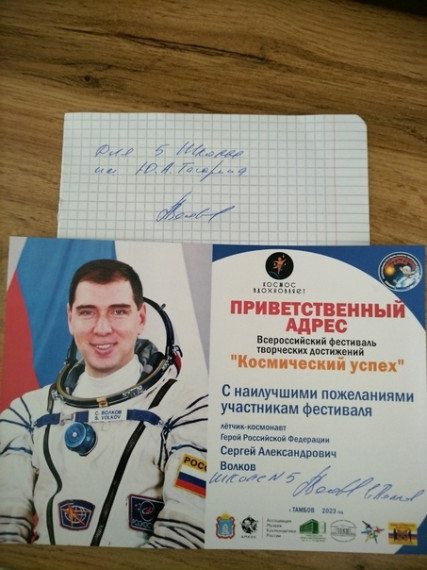 Для 5 школы
им Ю.А. Гагарина
КОСМОС
ВДОХНОВЛЯЕТ
ПРИВЕТСТВЕННЫЙ
АДРЕС
Всероссийский фестиваль
творческих достижений
"Космический успех"
С наилучшими пожеланиями
участникам фестиваля
лётчик-космонавт
Герой Российской Федерации
Сергей Александрович
Волков
школе N5
С. ВОЛКОВ
S. VOLKOV
РОСС
г.ТАМБОВ 2023 год
Ассоциация
Музеев
Космонавтики
России